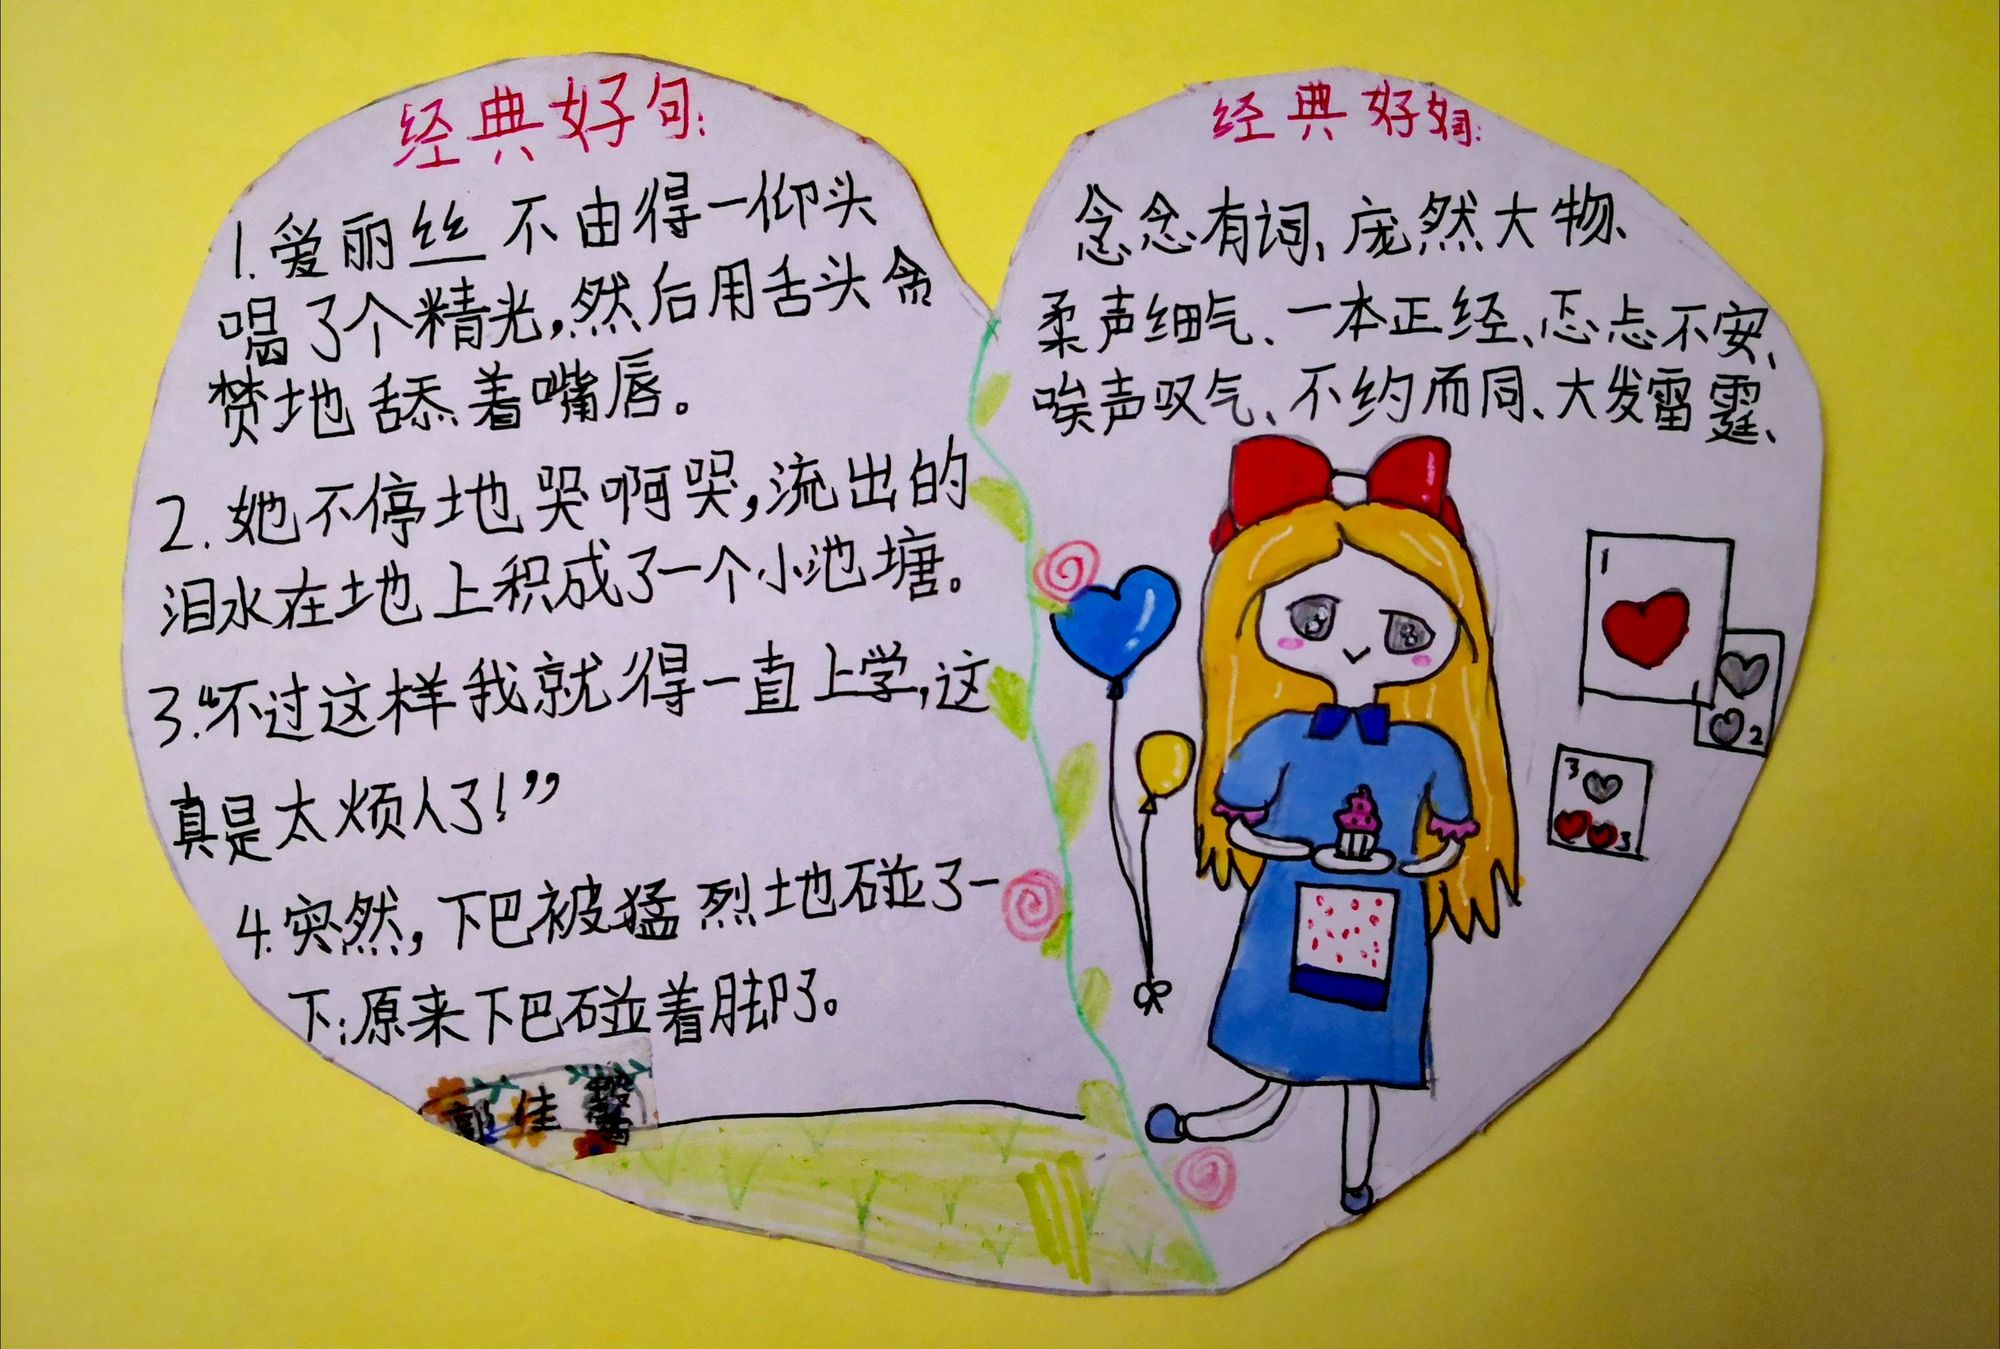 经典好句:
1.爱丽丝不由得一仰头
喝了个精光,然后用舌头贪
婪地舔着嘴唇。
2.她不停地哭啊哭,流出的
泪水在地上积成了一个小池塘。
3.“不过这样我就得一直上学,这
真是太烦人了!”
4.突然,下巴被猛烈地碰了一
下;原来下巴碰着脚了。
郭佳馨
经典好词:
念念有词、庞然大物、
柔声细气、一本正经、忐忑不安、
唉声叹气、不约而同、大发雷霆、
1
2
3
3